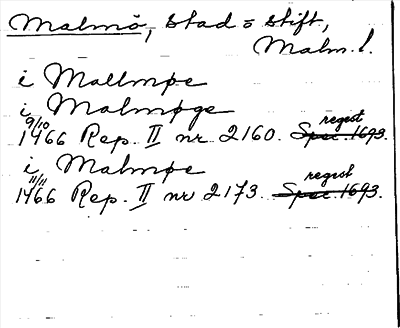 Malmö, stad o stift,
Malm. l.
i Mallmpe
i Malmøge
9/10 1466 Rep. II nr 2160. regest Spec. 1693.
i Malmpe
11/11 1466 Rep. II nr 2173. regest Spec. 1693.